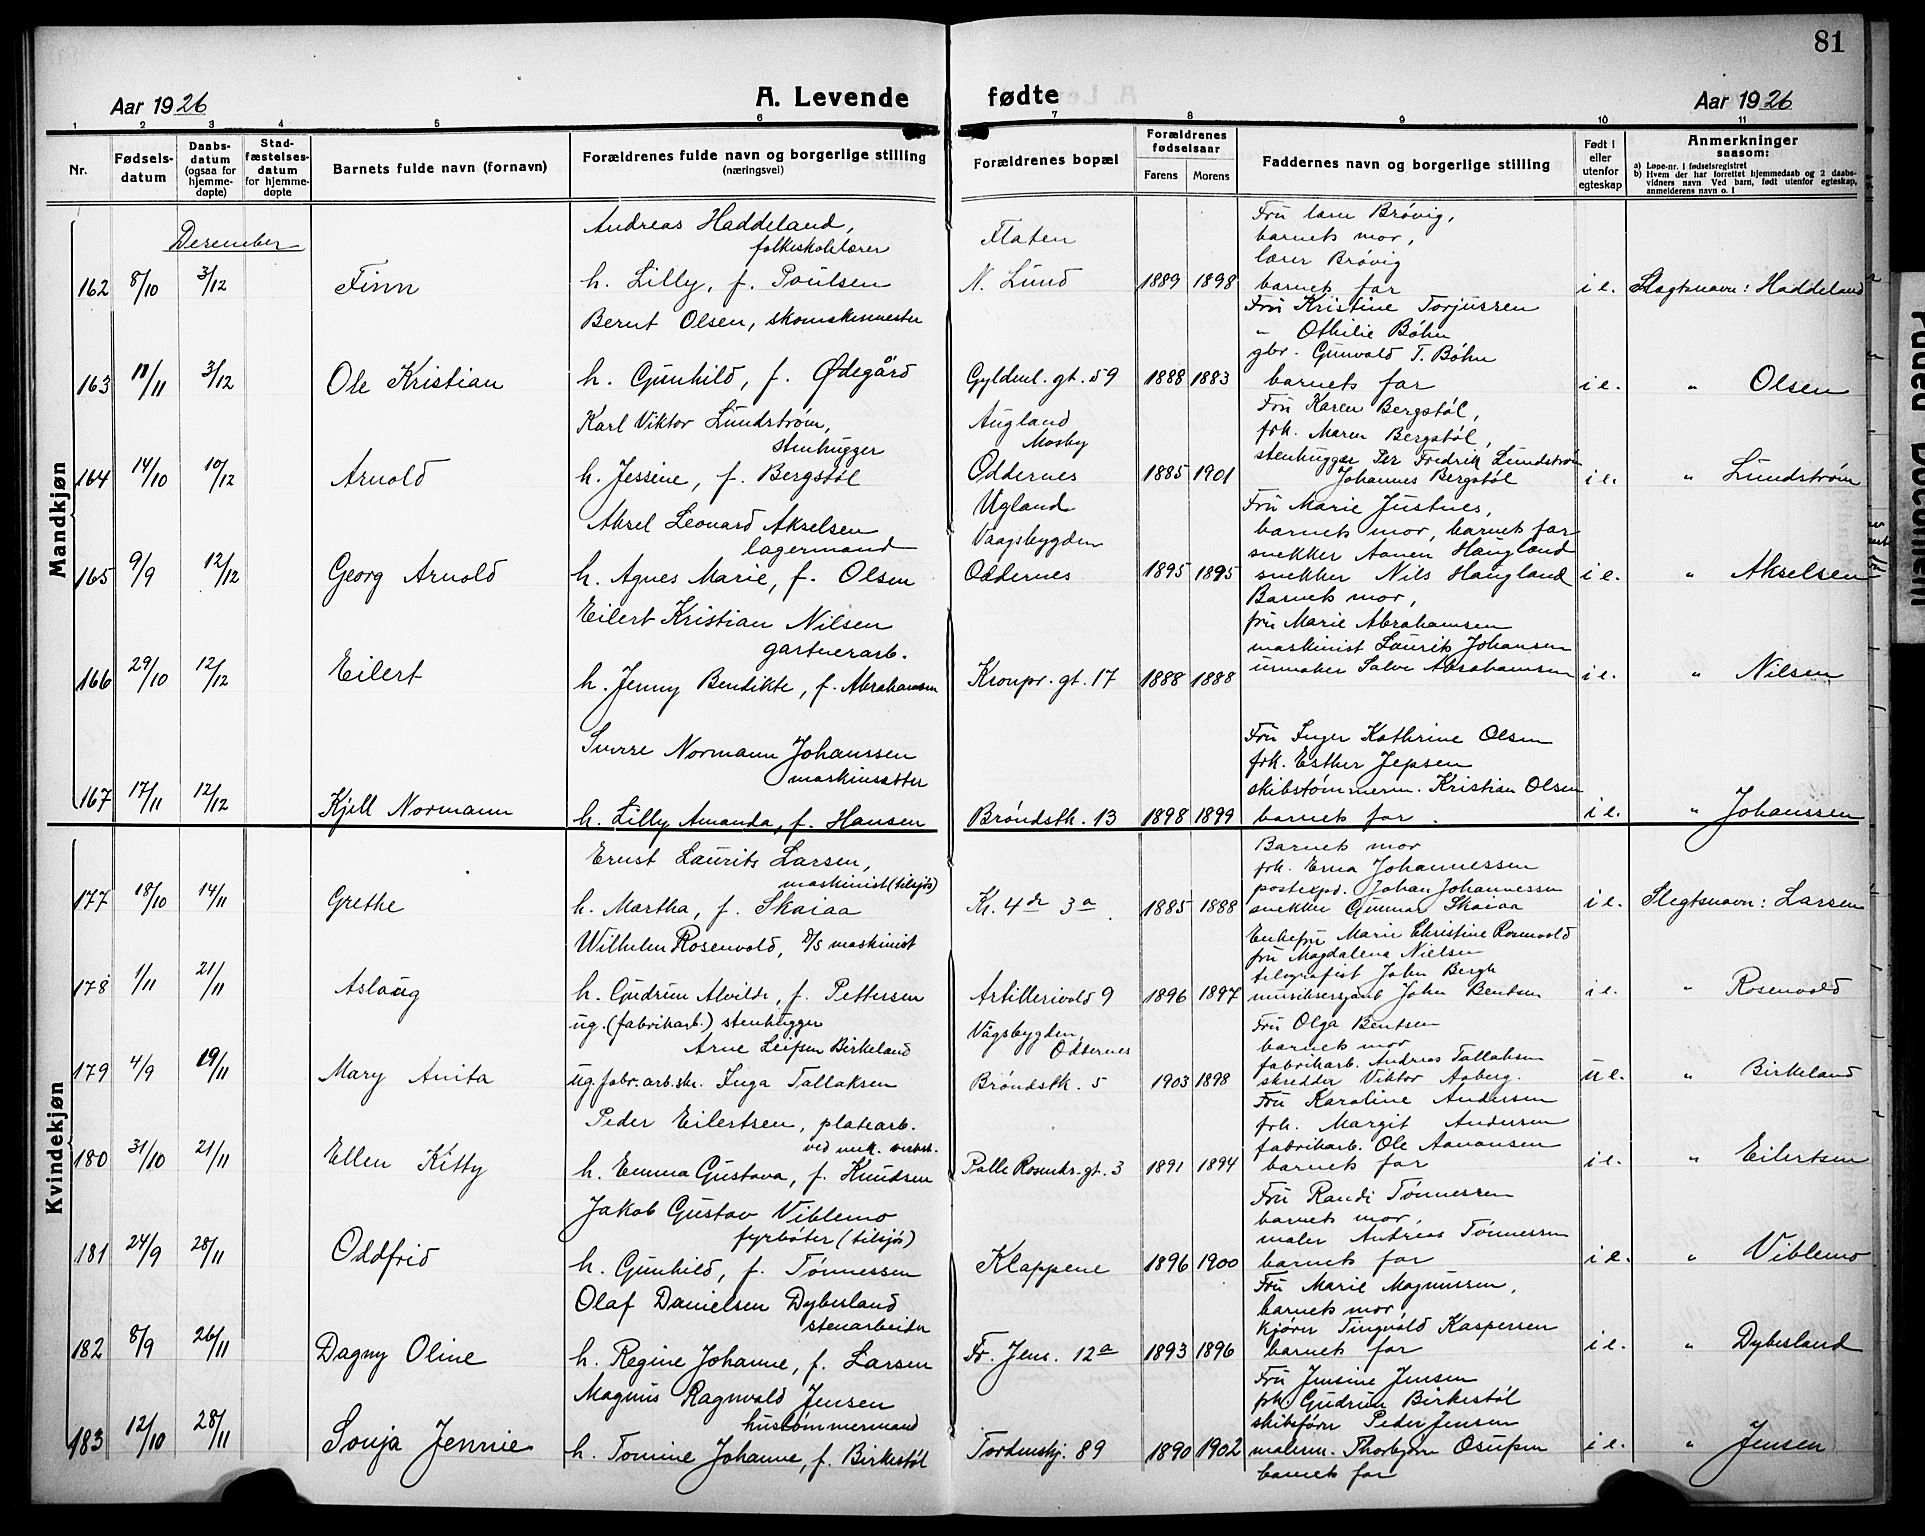 81
Aar 1926
A. Levende fødte
Aar 1926
1 2 3 4 5 6 7 8 9 10 11
Nr.
Fødsels-
datum
Daabs-
datum
(ogsaa for
hjemme-
døpte)
Stad-
fæstelses-
datum
for hjemme-
døpte
Barnets fulde navn (fornavn)
Forældrenes fulde navn og borgerlige stilling
(næringsvei)
Forældrenes bopæl
Forældrenes
fødselsaar
Farens Morens
Faddernes navn og borgerlige stilling
Født i
eller
utenfor
egteskap
Anmerkninger
saasom:
a) Løpe-nr. i fødselsregistret
b) Hvem der har forrettet hjemmedaab og 2 daabs-
vidners navn Ved barn, født utenfor egteskap,
anmelderens navn o. l
Mandkjøn
Desember
162 8/10 3/12 Finn
Andreas Haddeland,
folkeskolelærer
h. Lilly, f. Poulsen
Flaten
N. Lund
1889 1898
Fru lærer Brøvig,
barnets mor,
lærer Brøvig
barnets far
i e. Slegtsnavn: Haddeland
163 11/11 3/12 Ole Kristian
Bernt Olsen, skomakermester
h. Gunhild, f. Ødegård
Gyldenl. gt. 59
1888 1883
Fru Kristine Torjussen
" Othilie Bøhn
gbr. Gunvald T. Bøhn
barnets far
i e. " Olsen
164 14/10 10/12 Arnold
Karl Viktor Lundstrøm,
stenhugger
h. Jessine, f. Bergstøl
Augland
Mosby
Oddernes
1885 1901
Fru Karen Bergstøl,
frk. Maren Bergstøl,
stenhugger Per Fredrik Lundstrøm
Johannes Bergstøl
i e. " Lundstrøm
165 9/9 12/12 Georg Arnold
Aksel Leonard Akselsen
lagermand
h. Agnes Marie, f. Olsen
Ugland
Vaagsbygden
Oddernes
1895 1895
Fru Marie Justnes,
barnets mor, barnets far
snekker Aanen Haugland
snekker Nils Haugland
i e. " Akselsen
166 29/10 12/12 Eilert
Eilert Kristian Nilsen
gartnerarb.
h. Jenny Bendikte, f. Abrahamsen
Kronpr. gt. 17
1888 1888
Barnets mor,
fru Marie Abrahamsen
maskinist Laurits Johansen
urmaker Salve Abrahamsen
i e. " Nilsen
167 17/11 12/12 Kjell Normann
Sverre Normann Johanssen
maskinsetter
h. Lilly Amanda, f. Hansen
Brøndstk. 13
1898 1899
Fru Inger Kathrine Olsen
frk. Esther Jepsen
skibstømmerm. Kristian Olsen
barnets far.
i e. " Johanssen
Kvindekjøn
177 18/10 14/11 Grethe
Ernst Laurits Larsen,
maskinist (tilsjøs)
h. Martha, f. Skaiaa
Kr. 4de 3a
1885 1888
Barnets mor
frk. Erna Johannessen
postexpd. Johan Johannessen
snekker Gunnar Skaiaa
i e. Slegtsnavn: Larsen
178 1/11 21/11 Aslaug
Wilhelm Rosenvold, D/S maskinist
h. Gudrun Alvilde, f. Pettersen
Artillerivold 9
1896 1897
Enkefru Marie Christine Rosenvold
fru Magdalena Nielsen
telegrafist John Bergh
musiksersjant John Bentsen
i e. " Rosenvold
179 4/9 19/11 Mary Anita
ug. (fabrikarb.) stenhugger
Arne Leifsen Birkeland
ug. fabr.arb.ske. Inga Tallaksen
Vågsbygden,
Oddernes
Brøndstk. 5
1903 1898
Fru Olga Bentsen
barnets mor
fabrikarb. Andreas Tallaksen
skredder Viktor Aaberg.
u e. " Birkeland
180 31/10 21/11 Ellen Kitty
Peder Eilertsen, platearb.
ved mek. verkst.
h. Emma Gustava, f. Knudsen
Palle Rosenkr. gt. 3
1891 1894
Fru Karoline Andersen
frk. Margit Andersen
fabrikarb. Ole Aanonsen
barnets far
i e. " Eilertsen
181 24/9 28/11 Oddfrid
Jakob Gustav Viblemo
fyrbøter (tilsjøs)
h. Gunhild, f. Tønnessen
Klappene
1896 1900
Fru Randi Tønnessen
barnets mor,
maler Andreas Tønnessen
barnets far
i e. " Viblemo
182 8/9 26/11 Dagny Oline
Olaf Danielsen Dybesland
stenarbeider
h. Regine Johanne, f. Larsen
Fr. Jens. 12a
1893 1896
Fru Marie Magnussen,
barnets mor,
kjører Tingvald Kaspersen
barnets far
i e. " Dybesland
183 12/10 28/11 Sonja Jennie
Magnus Ragnvald Jensen
hustømmermand
h. Tomine Johanne, f. Birkestøl
Tordenskj. 89
1890 1902
Fru Jensine Jensen
frk. Gudrun Birkestøl
skibsfører Peder Jensen
malerm. Thorbjørn Osufsen
barnets far
i e. " Jensen